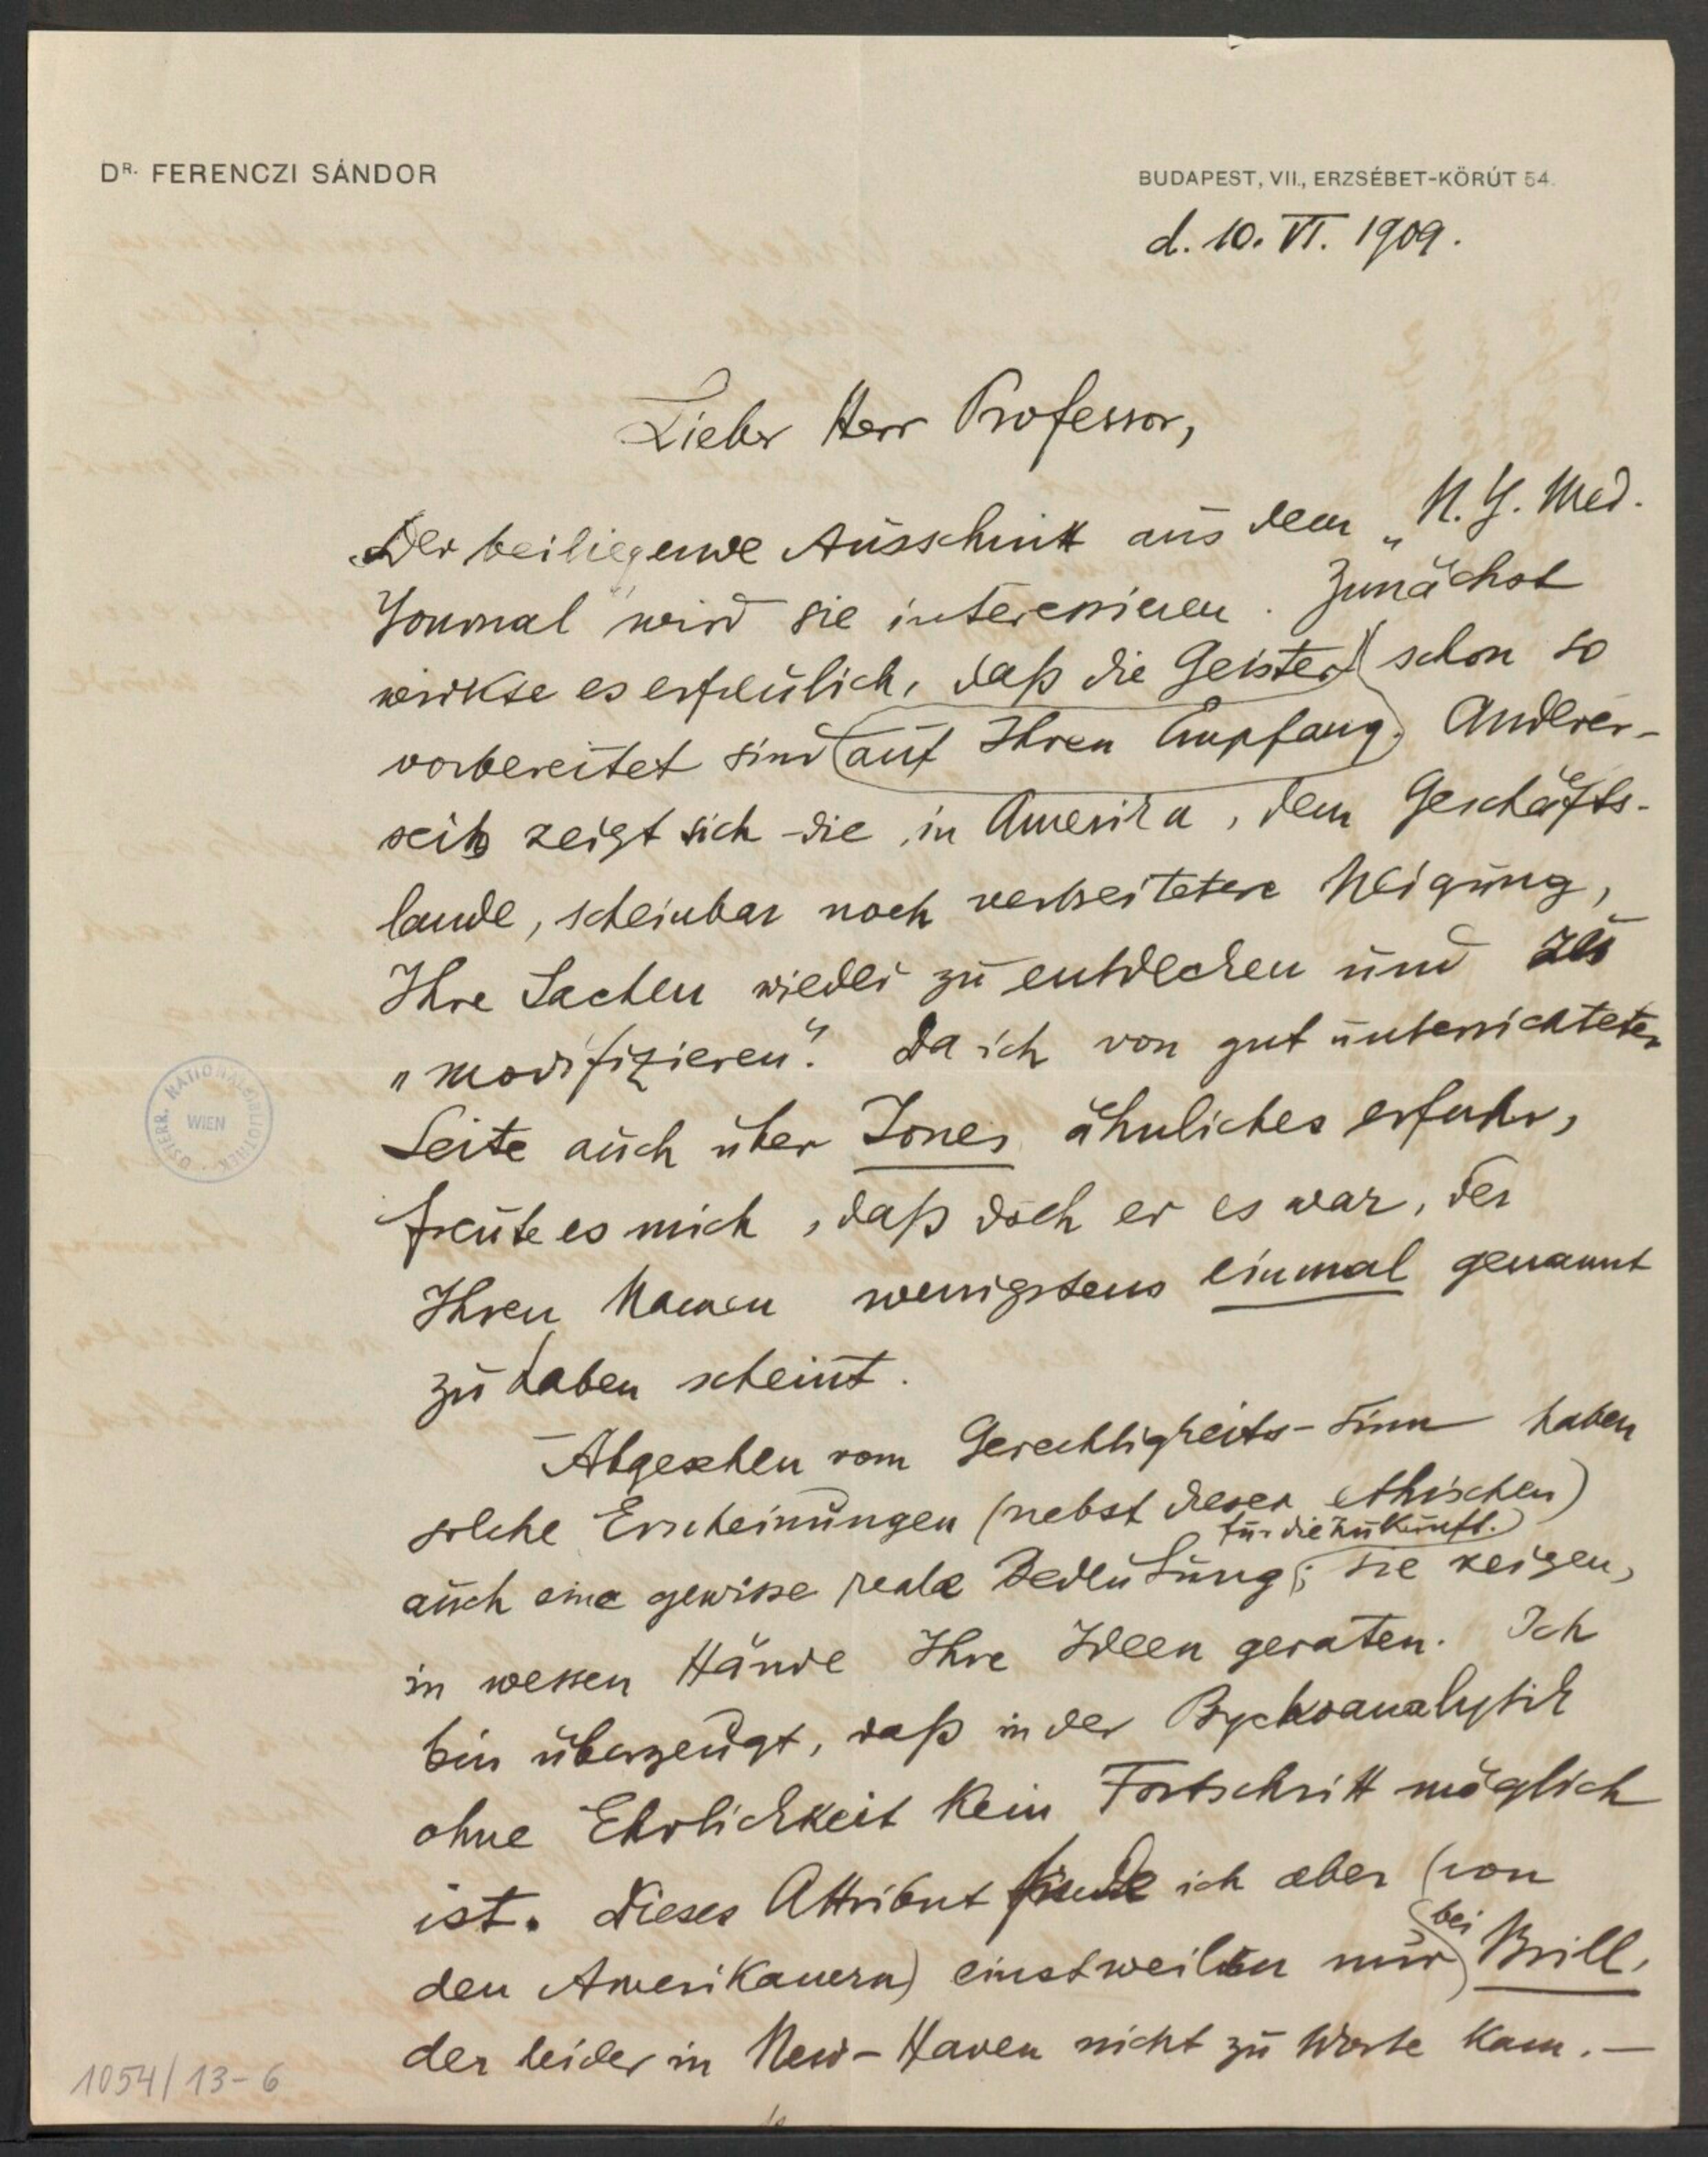 DR. FERENCZI SÁNDOR
BUDAPEST, VII., ERZSÉBET-KÖRÚT 54.
d. 10. VI. 1909.
Lieber Herr Professor,
Der beiliegende Ausschnitt aus dem „N. Y. Med.
Journal" wird sie interessieren. Zunächst
wirkte es erfreulich, daß die Geister schon so
vorbereitet sind auf Ihren Empfang. Anderer-
seits zeigt sich die, in Amerika, dem Geschäfts-
lande, scheinbar noch verbreitetere Neigung,
Ihre Sachen wieder zu entdecken und zu
„modifizieren". Da ich von gut unterrichteter
Seite auch über Jones ähnliches erfuhr,
freute es mich, daß doch er es war, der
Ihren Namen wenigstens einmal genannt
zu haben scheint.
Abgesehen vom Gerechtigkeits-Sinn haben
solche Erscheinungen (nebst dieser ethischen)
für die Zukunft.
auch eine gewisse reale Bedeutung; sie zeigen,
in wessen Hände Ihre Ideen geraten. Ich
bin überzeugt, daß in der Psychoanalytik
ohne Ehrlichkeit kein Fortschritt möglich
ist. Dieses Attribut finde ich aber (von
bei
den Amerikanern) einstweilen nur Brill,
der leider in New-Haven nicht zu Worte kam. —
ÖSTERR. NATIONALBIBLIOTHEK
WIEN
1054/13-6